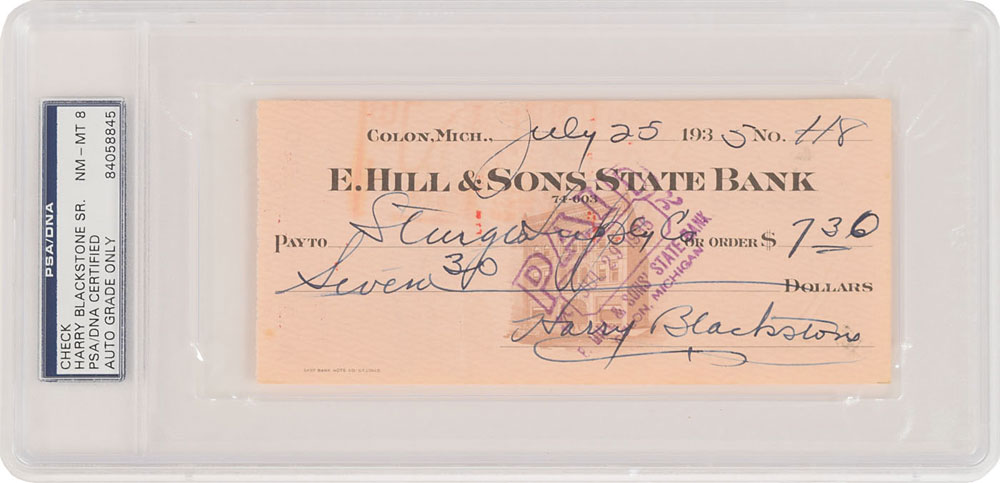 PSA/DNA
CHECK
HARRY BLACKSTONE SR.
PSA/DNA CERTIFIED
AUTO GRADE ONLY
NM - MT 8
84058845
COLON, MICH., July 25 1935 NO. 118
E. HILL & SONS STATE BANK
74-603
PAY TO Sturgis Supply Co OR ORDER $ 7 30
Seven 30 DOLLARS
Harry Blackstone
PAID
E. HILL & SONS' STATE BANK
COLON, MICHIGAN